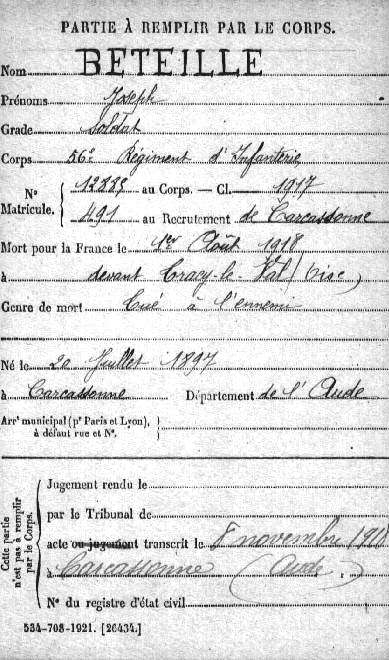 PARTIE À REMPLIR PAR LE CORPS.
Nom BETEILLE
Prénoms Joseph
Grade Soldat
Corps 56e Régiment d'Infanterie
N° Matricule. 12883 au Corps. — Cl. 1917
491 au Recrutement de Carcassonne
Mort pour la France le 1er Août 1918
à devant Tracy-le-Val (Oise)
Genre de mort Tué à l'ennemi
Né le 20 Juillet 1897
à Carcassonne Département de l'Aude
Arrt municipal (pr Paris et Lyon), à défaut rue et N°.
Cette partie n'est pas à remplir par le Corps.
Jugement rendu le
par le Tribunal de
acte ou jugement transcrit le 8 novembre 1918
à Carcassonne (Aude)
N° du registre d'état civil
534-708-1921. [26434.]